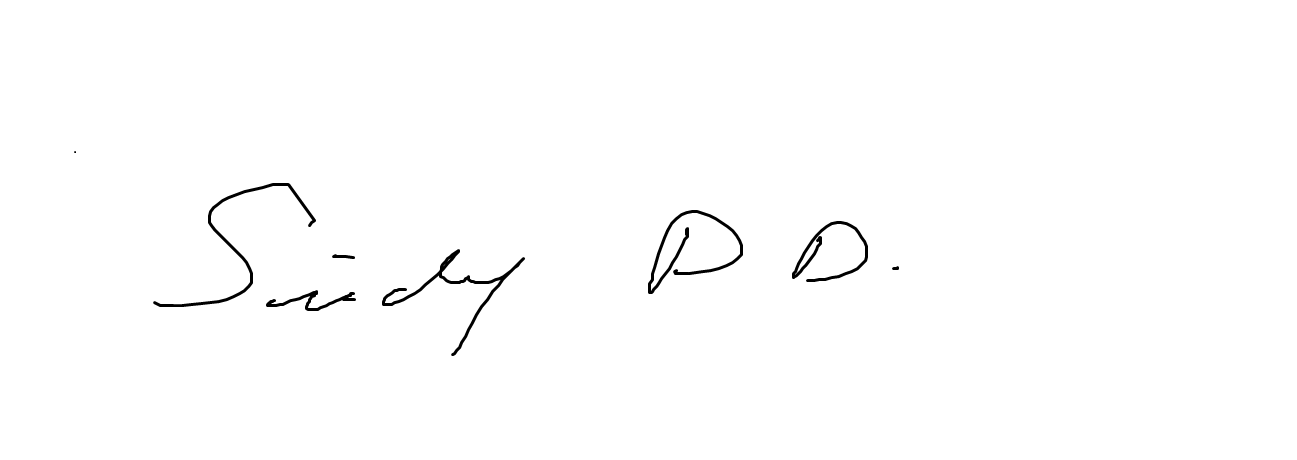 Sindy D D.